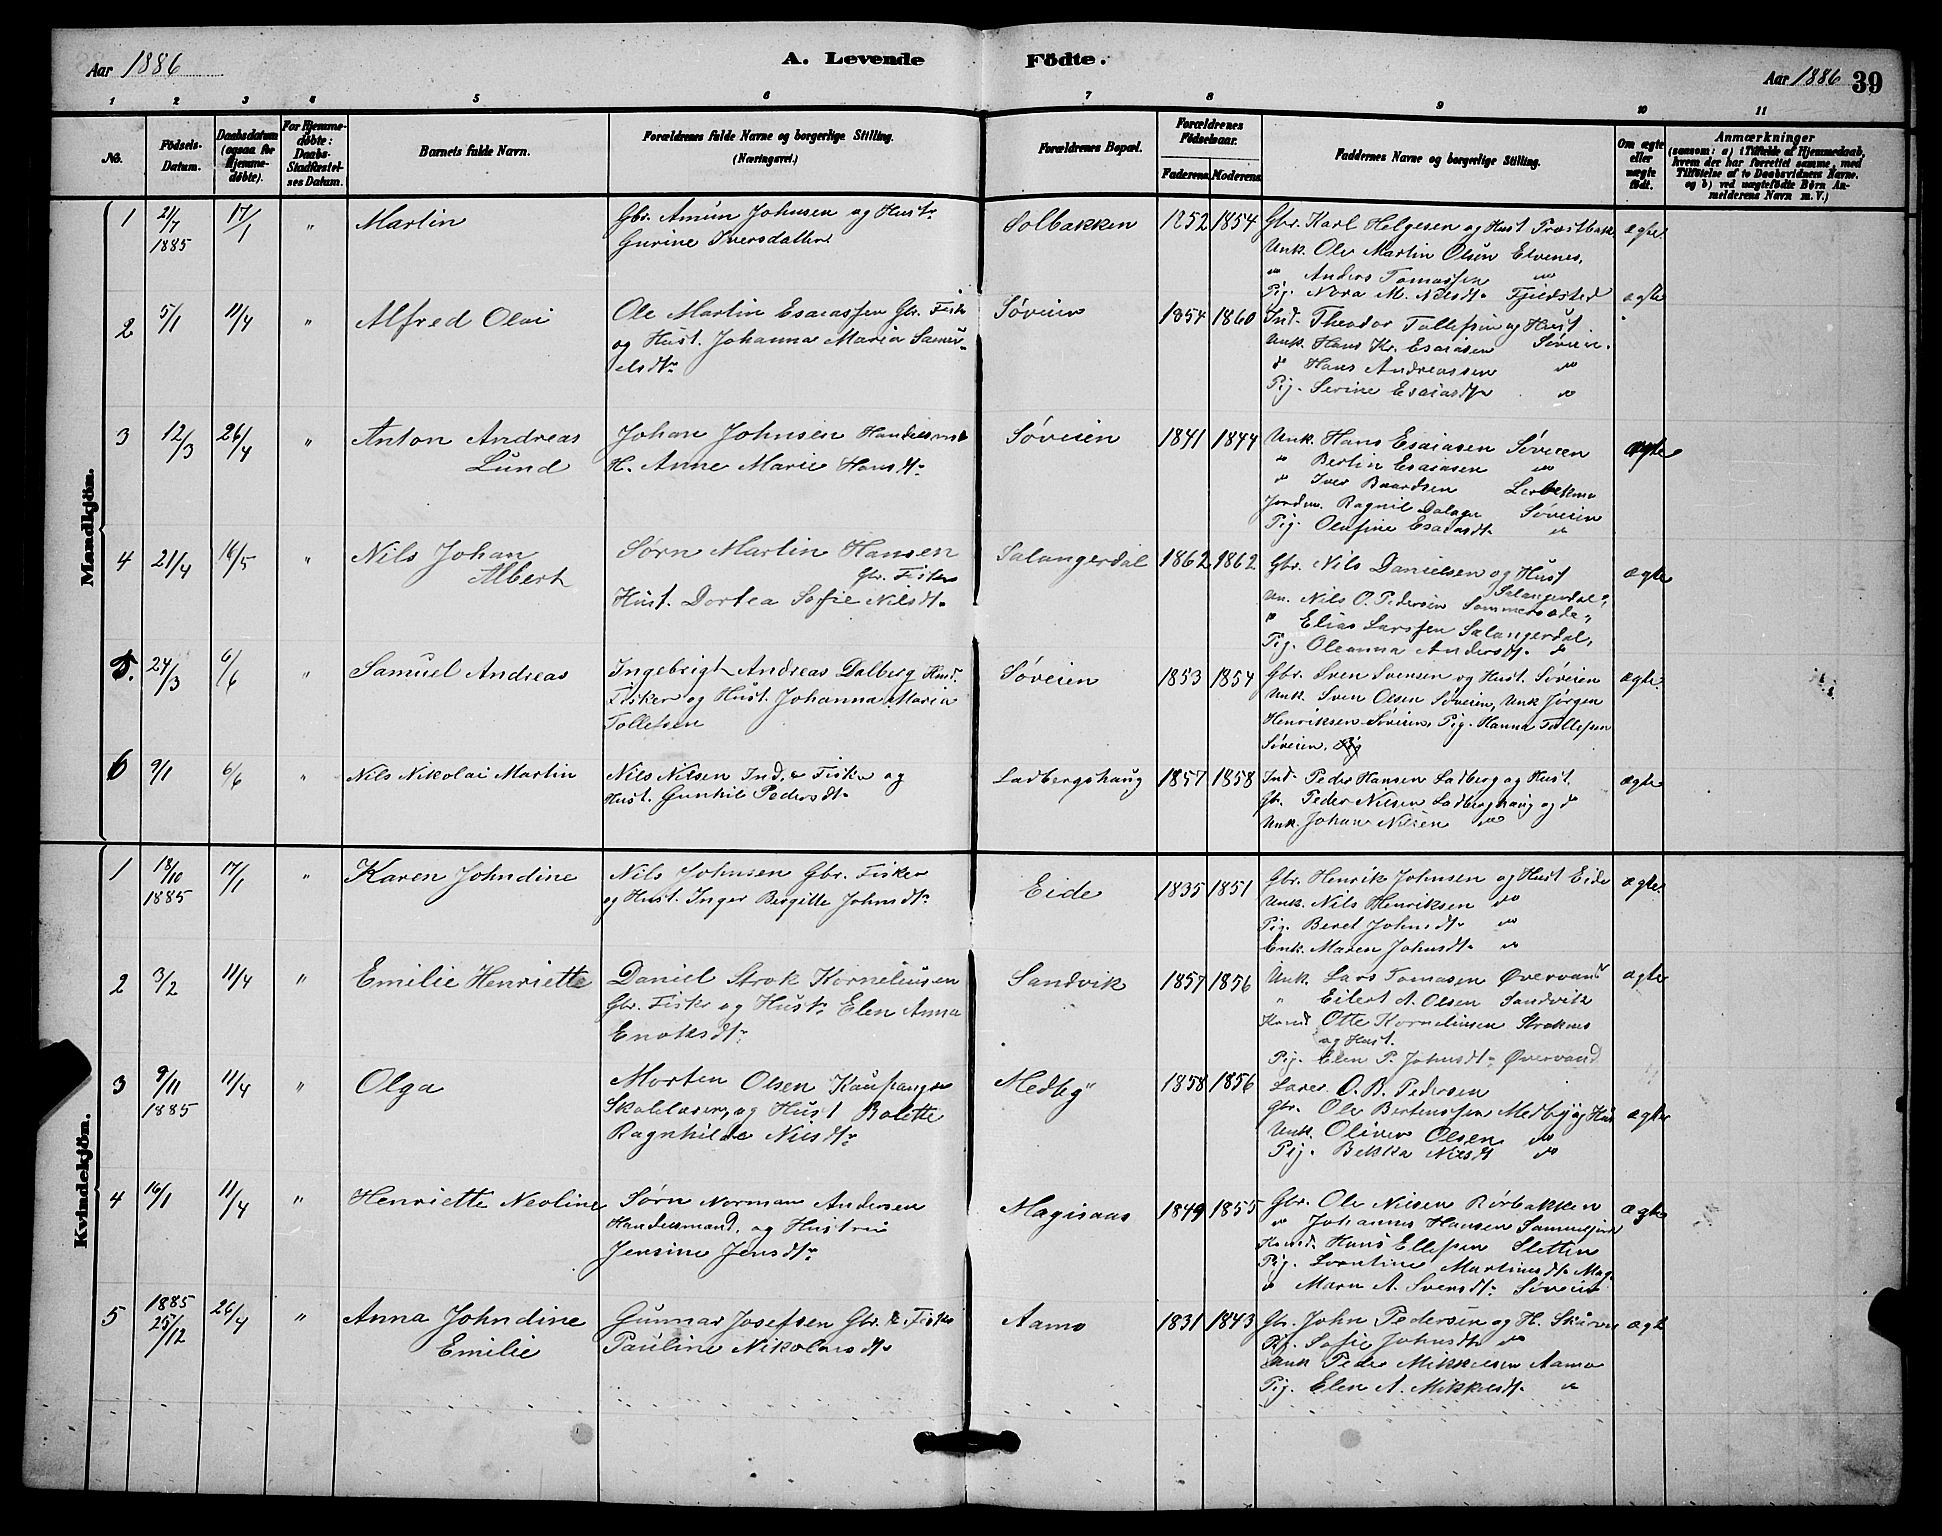 Aar 1886
A. Levende Födte.
Aar 1886 39
1 2 3 4 5 6 7 8 9 10 11
No.
Födsels-Datum.
Daabsdatum (ogsaa for Hjemme-døbte).
For Hjemme-døbte: Daabs-Stadfæstelses Datum.
Barnets fulde Navn.
Forældrenes fulde Navne og borgerlige Stilling. (Næringsvei.)
Forældrenes Bopæl.
Forældrenes Födselsaar.
Faderens. Moderens.
Faddernes Navne og borgerlige Stilling.
Om ægte eller uægte födt.
Anmærkninger
(saasom: a) i Tilfælde af Hjemmedaab, hvem der har forrettet samme, med Tilføielse af to Daabsvidners Navne. og b) ved uægtefödte Börn Anmelderens Navn m. V.)
Mandkjön.
1 21/7 1885 17/1 " Martin
Gbr. Amun Johnsen og Hustr.
Gurine Iversdatter
Solbakken 1852 1854
Gbr. Karl Helgesen og Hust
Unk. Ole Martin Olsen Elvenes,
" Anders Tomassen "
Pig. Nora M. Nilsdtr Fjeldsted
ægte
2 5/1 11/4 " Alfred Olai
Ole Martin Esaiassen Gbr. Fisk
og Hust. Johanna Maria Samu-
elsdtr
Søveien 1854 1860
Ind. Theodor Tollefsen og Hust.
Unk. Hans Kr. Esaiasen Søveien.
" Hans Andreassen "
Pig. Serine Esaiasdtr "
ægte
3 12/3 26/4 " Anton Andreas
Lund
Johan Johnsen Handelsmd
H. Anne Marie Hansdtr
Søveien 1841 1844
Unk. Hans Esaiasen Søveien
" Bertin Esaiasen "
" Iver Baardsen
Jordm. Ragnil Dalager Søveien
Pig. Olufine Esaiasdtr "
ægte
4 21/4 16/5 " Nils Johan
Albert
Sørn Martin Hansen
Gbr. Fisker
Hust. Dortea Sofie Nilsdtr
Salangerdal 1862 1862
Gbr. Nils Danielsen og Hust
Salangerdal,
Un. Nils O. Pedersen
" Elias Larssen Salangerdal,
Pig. Oleanna Andersdtr "
ægte
5. 24/3 6/6 " Samuel Andreas
Ingebrigt Andreas Dalberg Husd.
Fisker og Hust. Johanna Maria
Tollefsen
Søveien 1853 1854
Gbr. Sven Svensen og Hust. Søveien
Unk. Sven Olsen Søveien, Unk Jørgen
Henriksen Søveien, Pig. Hanna Tollefsen
Søveien.
ægte
6 9/1 6/6 " Nils Nikolai Martin
Nils Nilsen Ind. & Fisker og
Hust. Gunhil Pedersdtr
Ladbergshaug 1857 1858
Ind. Peder Hansen Ladberg og Hust.
Gbr. Peder Nilsen Ladberghaug og do
Unk. Johan Nilsen "
ægte
Kvindekjön.
1 18/10 1885 17/1 " Karen Johndine
Nils Johnsen Gbr. Fisker
og Hust. Inger Bergitte Johnsdtr
Eide 1835 1851
Gbr. Henrik Johnsen og Hust Eide
Unk. Nils Henriksen "
Pig. Beret Johnsdtr "
Enk. Maren Johnsdtr "
ægte
2 3/2 11/4 " Emilie Henriette
Daniel Strok Korneliusen
Gbr. Fisker og Hustr. Elen Anna
Enoksdtr
Sandvik 1857 1856
Unk. Lars Tomasen Øvervand
" Eilert A. Olsen Sandvik
Otte Korneliusen
og Hust.
Pig. Elen P. Johnsdtr Øvervand
ægte
3 9/11 1885 11/4 " Olga
Morten Olsen Kaupanger
Skolelærer, og Hust Bolette
Ragnhilde Nilsdtr
Medby 1858 1856
Lærer O. B. Pedersen
Gbr. Ole Bertenssen Medby og Hus
Unk. Oliver Olsen "
Pig. Bekka Nilsdt "
ægte
4 16/1 11/4 " Henriette Neoline
Sørn Norman Andersen
Handelsmand, og Hustru
Jensine Jensdtr
Magisaas 1849 1855
Gbr. Ole Nilsen Rörbakken
" Johannes Hansen
Hans Ellefsen Sletten
Pig. Lorntine Martinsdtr Mag.
" Marn A. Svensdtr Søveien
ægte
5 1885 25/12 26/4 " Anna Johndine
Emilie
Gunnar Josefsen Gbr. & Fisker
Pauline Nikolaisdtr
Aamo 1831 1843
Gbr. John Pedersen og H.
Pig. Sofie Johnsdtr "
Unk Peder Mikkelsen Aamo
Pig. Elen A. Mikkelsdtr "
ægte